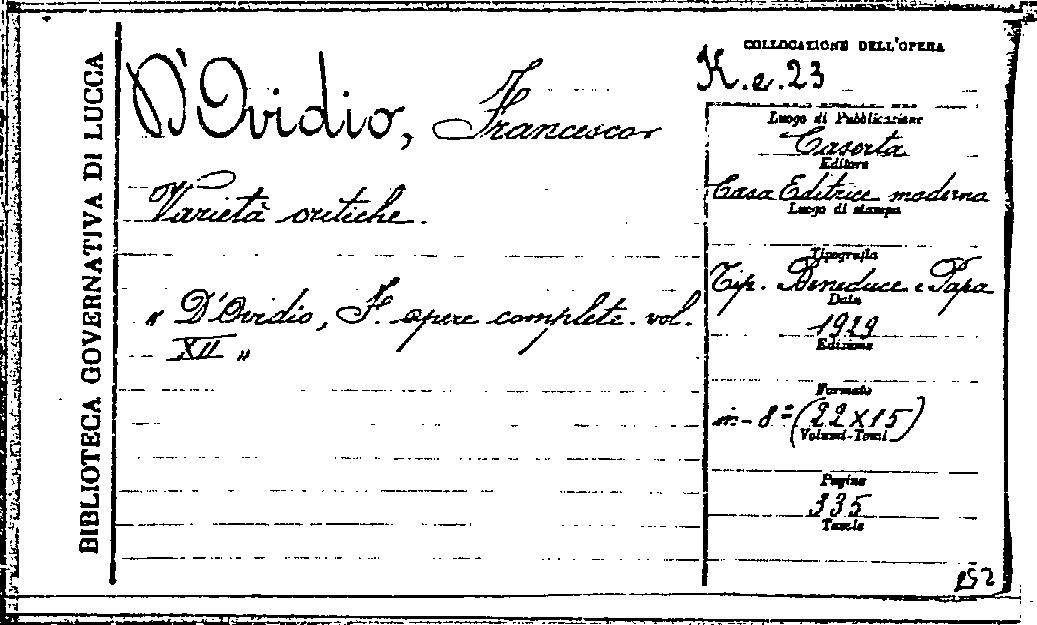 BIBLIOTECA GOVERNATIVA DI LUCCA
D'Ovidio, Francesco
Varietà critiche.
" D'Ovidio, F. opere complete. vol.
XII "
COLLOCAZIONE DELL'OPERA
K.e.23
Luogo di Pubblicazione
Caserta
Editore
Casa Editrice moderna
Luogo di stampa
Tipografia
Tip. Beneduce e Papa
Data
1929
Edizione
Formato
in-8º (22x15)
Volumi-Tomi
Pagine
335
Tavole
152